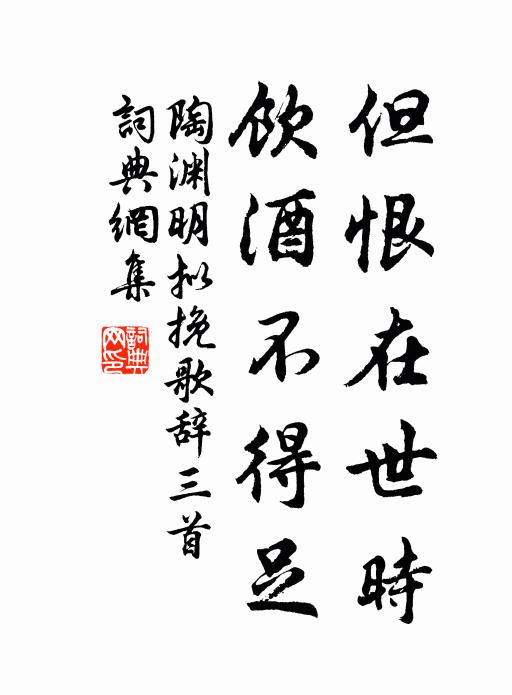 但恨在世時
飲酒不得足
陶渊明拟挽歌辞三首
詞典網集
詞典网印